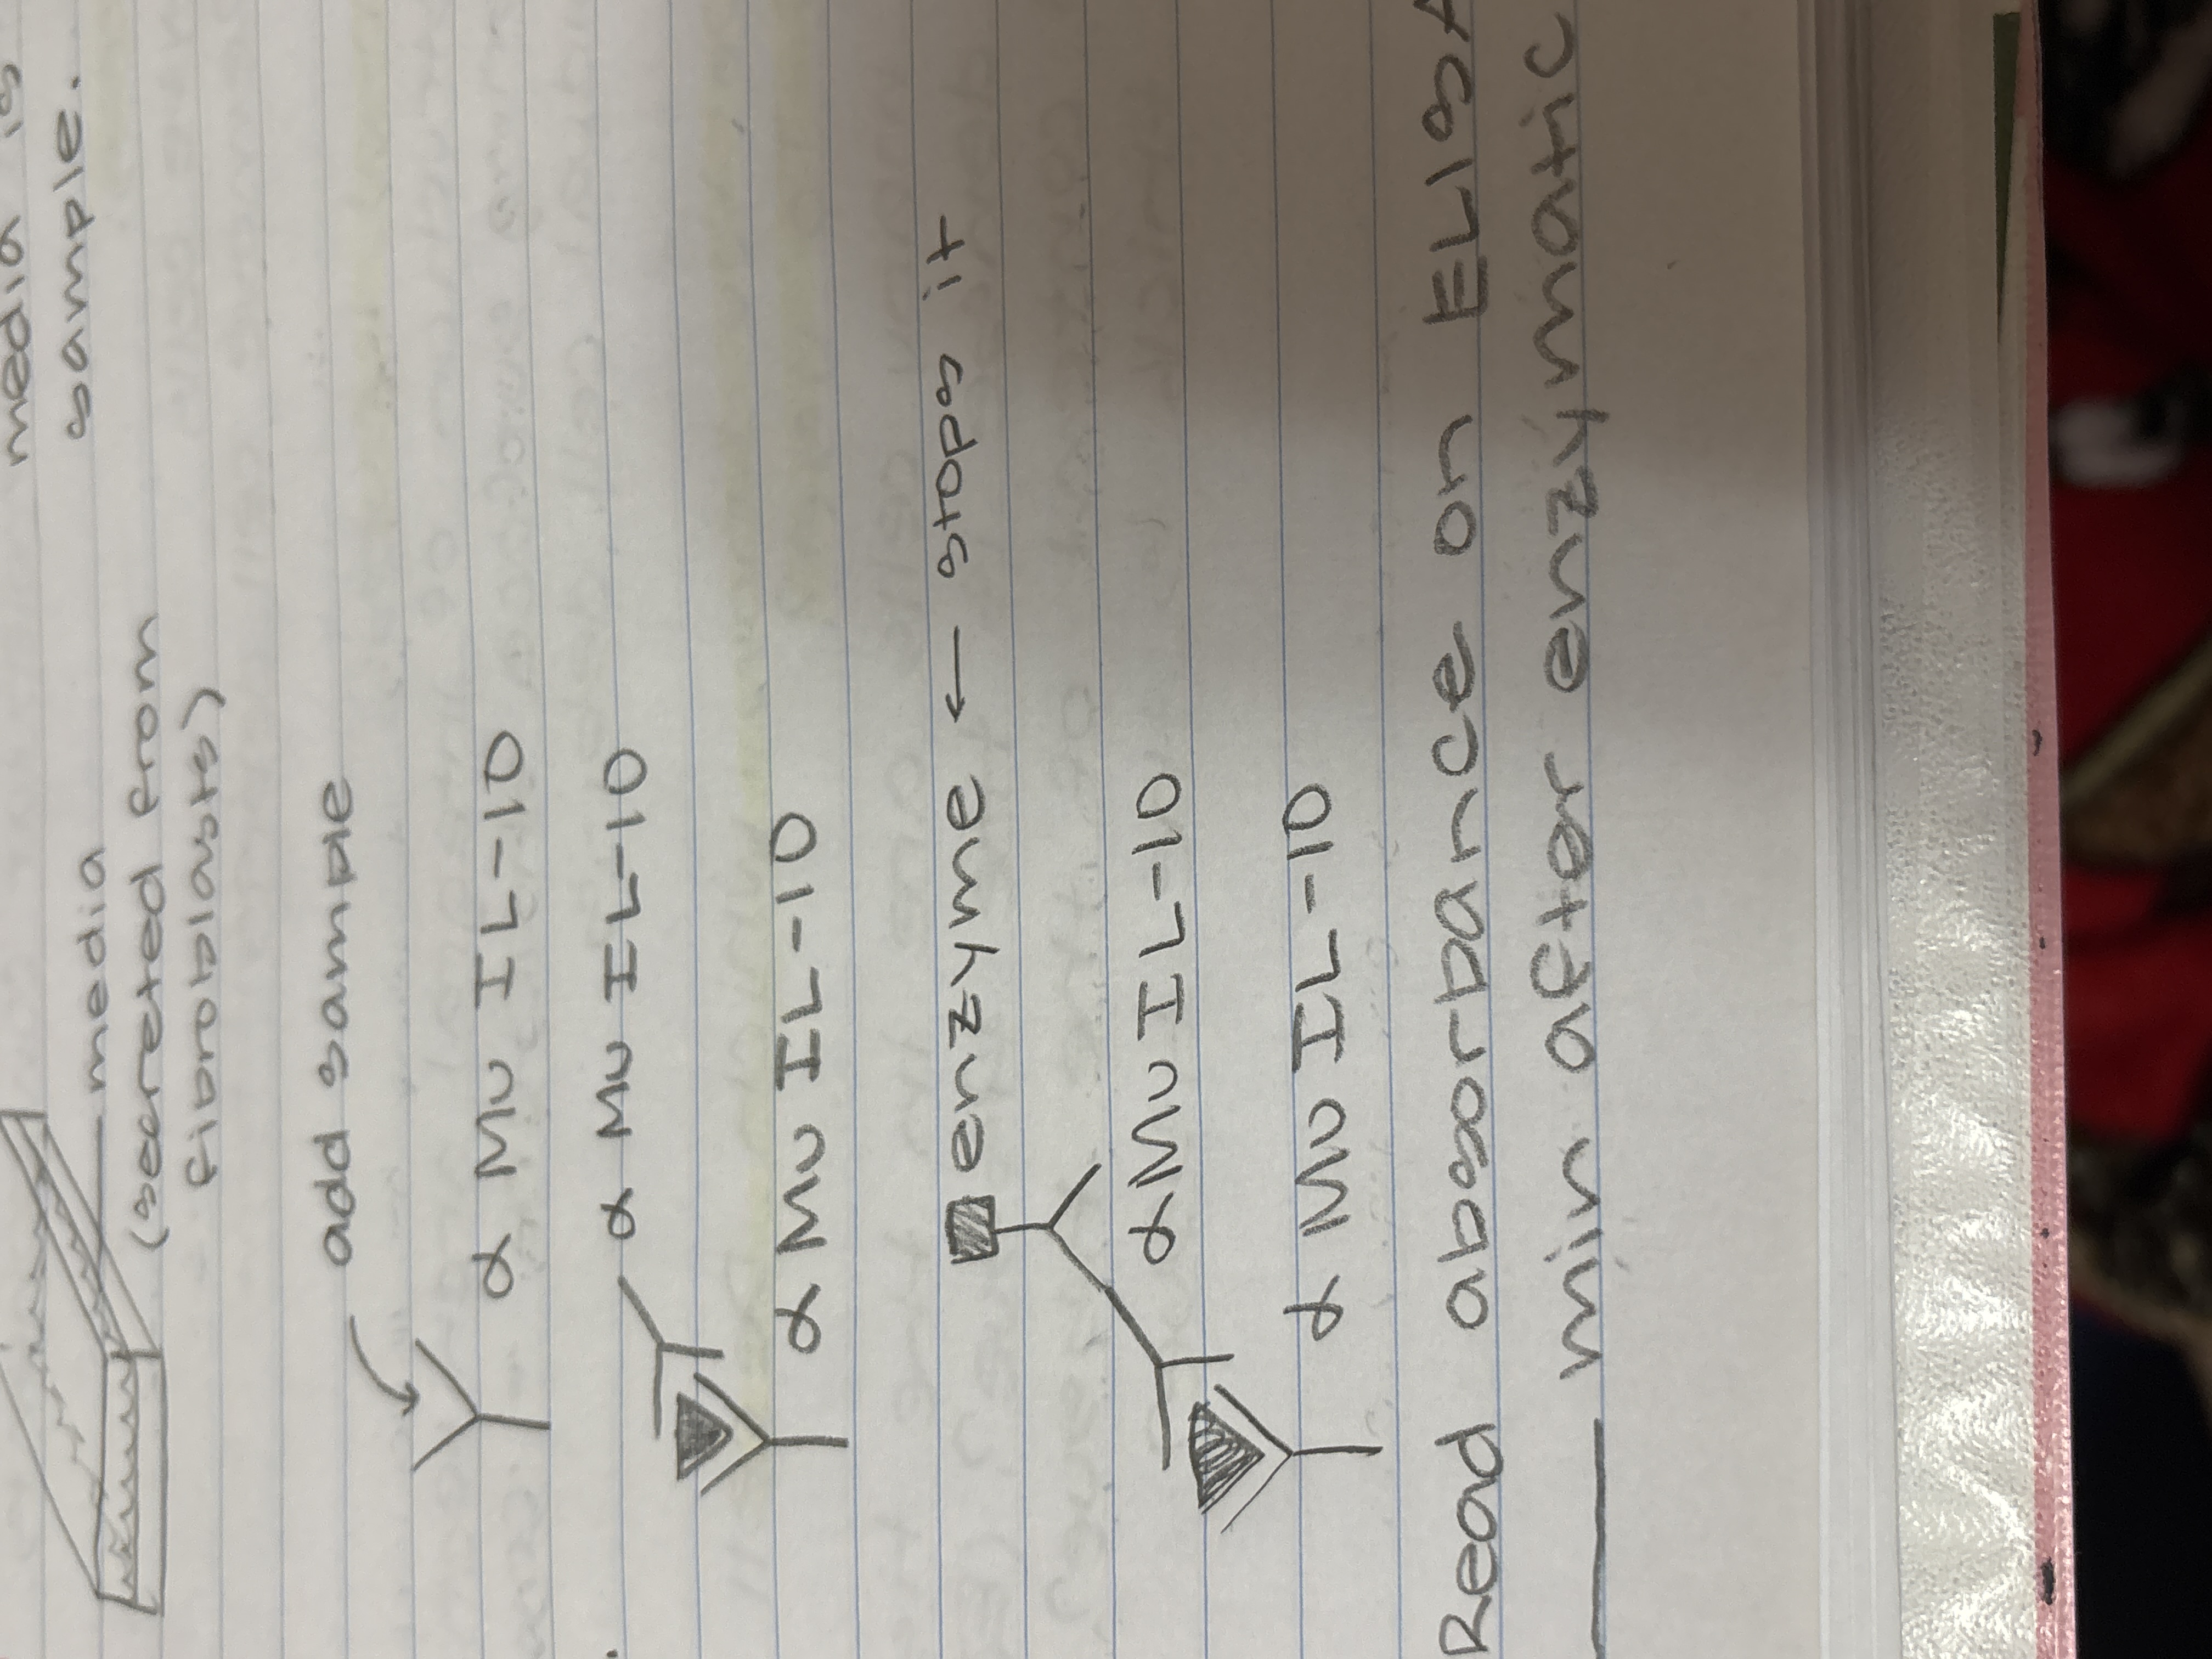 media is
sample.
media
(secreted from
fibroblasts)
add sample
α Mu IL-10
α Mu IL-10
α Mu IL-10
enzyme ← stops it
αMu IL-10
α Mu IL-10
Read absorbance on ELISA
___ min after enzymatic